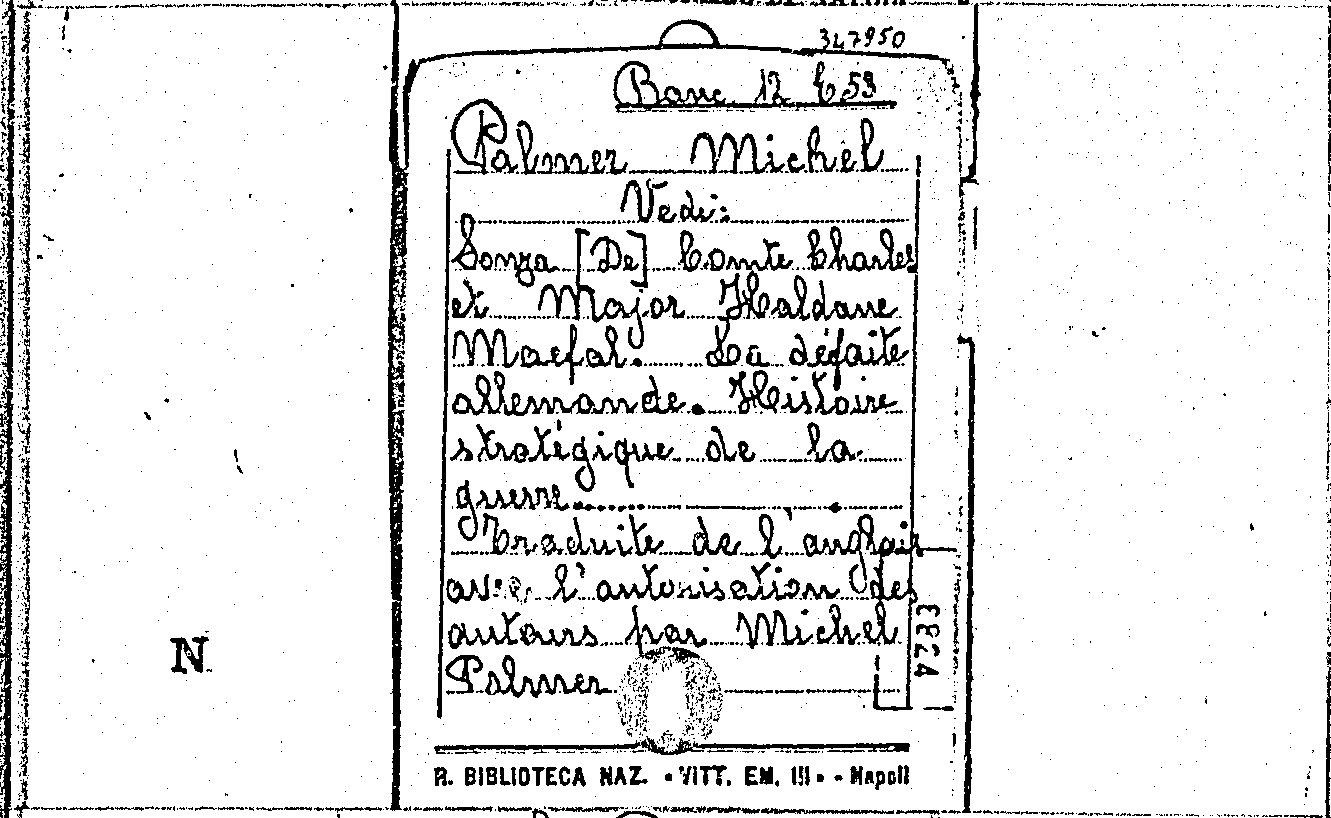 347950
Banc. 12 E 53
Palmer Michel
Vedi:
Souza [De] Comte Charles
et Major Haldane
Macfal. La défaite
allemande. Histoire
stratégique de la
guerre.
Traduite de l'anglais
avec l'autorisation des
autours par Michel
Palmer
4233
N
R. BIBLIOTECA NAZ. • VITT. EM. III • - Napoli